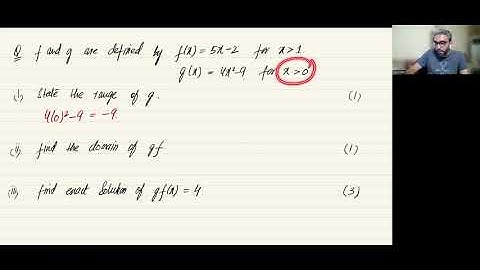 Q f and g are defined by f(x) = 5x-2 for x>1.
g(x) = 4x²-9 for x>0
(i) State the range of g. (1)
4(0)²-9 = -9
(ii) find the domain of gf (1)
(iii) find exact solution of gf(x) = 4 (3)